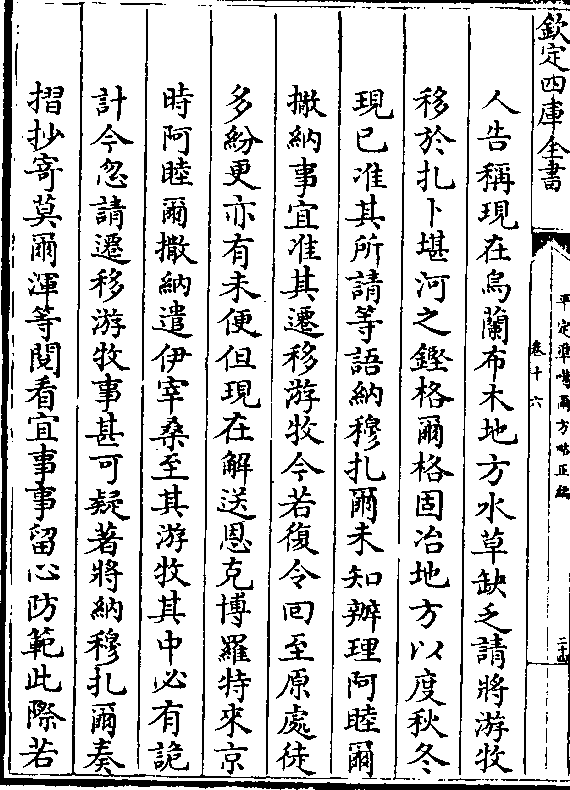 欽定四庫全書
平定準噶爾方略正編
卷十六
二十四
人告稱現在烏蘭布木地方水草缺乏請將游牧
移於扎卜堪河之鏗格爾格固冶地方以度秋冬
現已准其所請等語納穆扎爾未知辦理阿睦爾
撒納事宜准其遷移游牧今若復令回至原處徒
多紛更亦有未便但現在解送恩克博羅特來京
時阿睦爾撒納遣伊宰桑至其游牧其中必有詭
計今忽請遷移游牧事甚可疑著將納穆扎爾奏
摺抄寄莫爾渾等閱看宜事事留心防範此際若